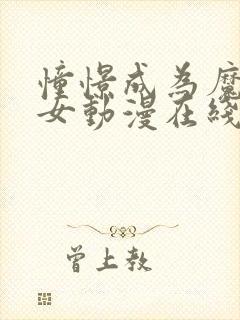 憧憬成为魔
女動漫在綫
曾上教